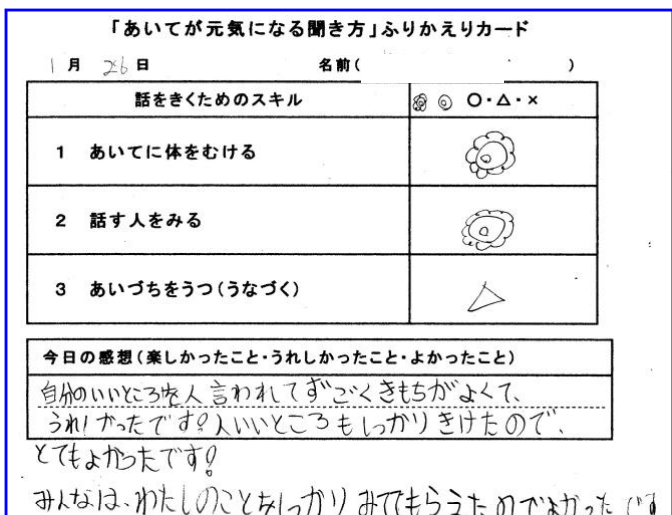 「あいてが元気になる聞き方」ふりかえりカード
1月 26日 名前( )
話をきくためのスキル ○・△・×
1 あいてに体をむける
2 話す人をみる
3 あいづちをうつ(うなづく) △
今日の感想(楽しかったこと・うれしかったこと・よかったこと)
自分のいいところを人言われてすごくきもちがよくて、
うれしかったです。人いいところもしっかりきけたので、
とてもよかったです。
みんなは、わたしのことをしっかりみてもらえたのでよかったです